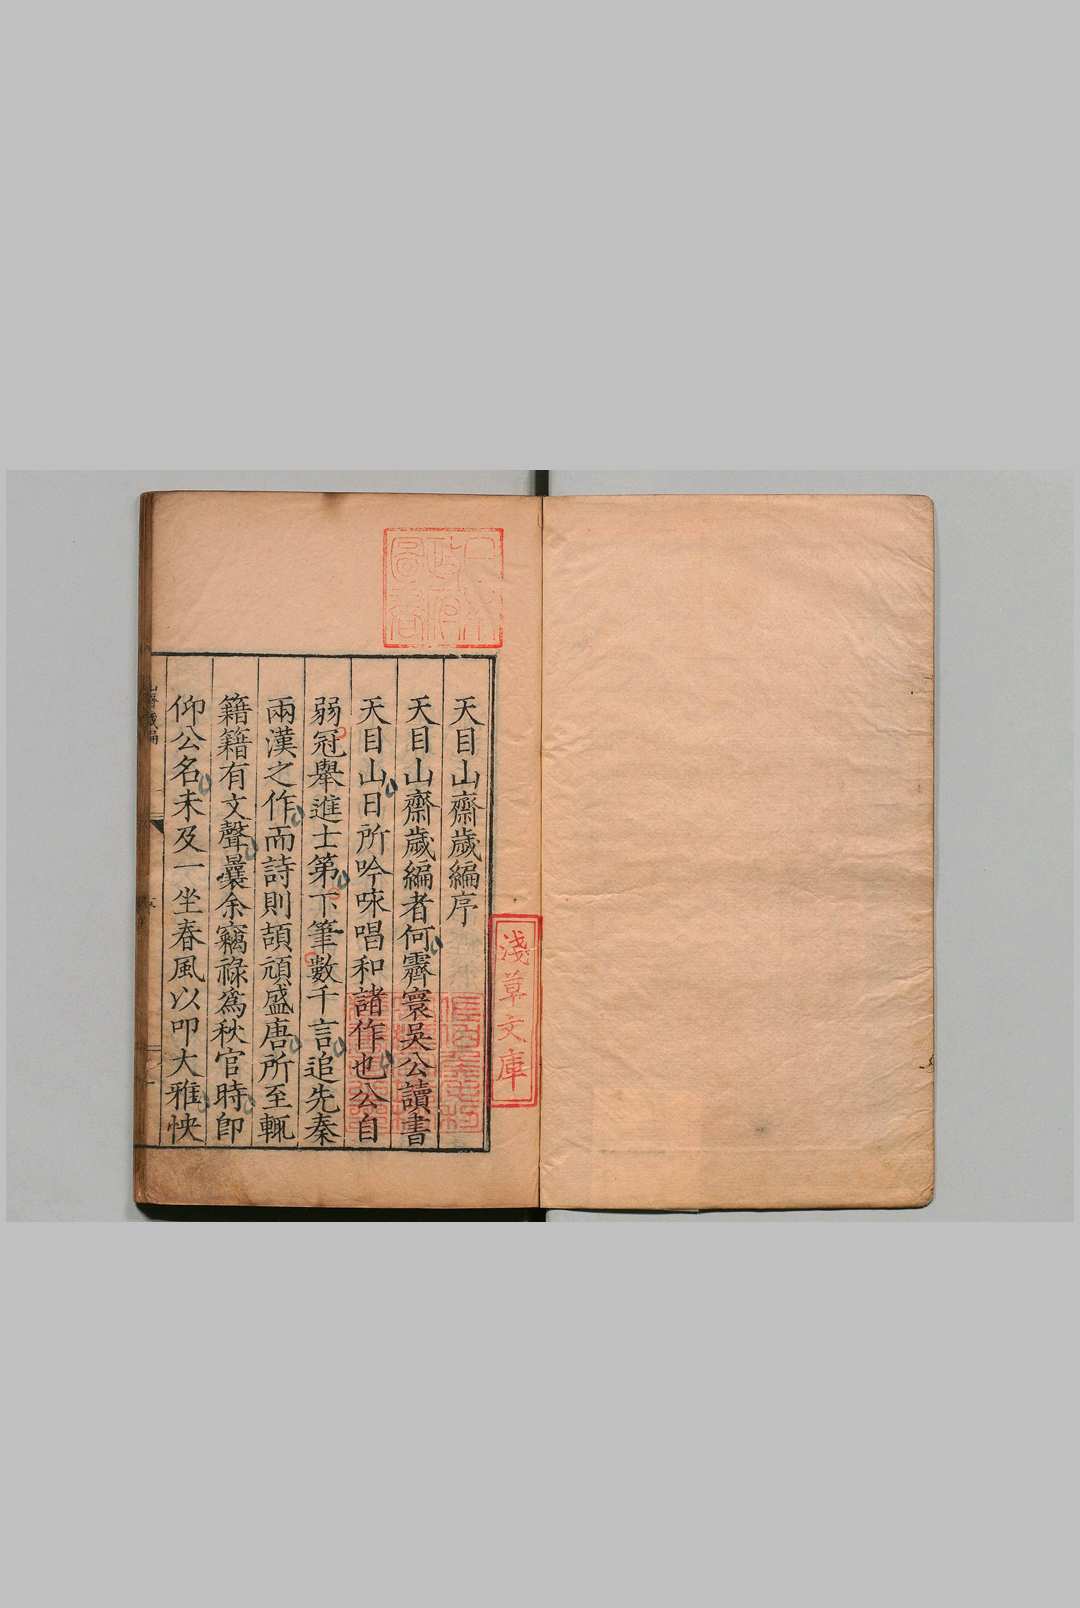 天目山齋歲編序
天目山齋歲編者何霽寰吳公讀書
天目山日所吟咏唱和諸作也公自
弱冠舉進士第下筆數千言追先秦
兩漢之作而詩則頡頏盛唐所至輒
籍籍有文聲曩余竊祿為秋官時即
仰公名未及一坐春風以叩大雅怏
淺草文庫
日本
政府
圖書